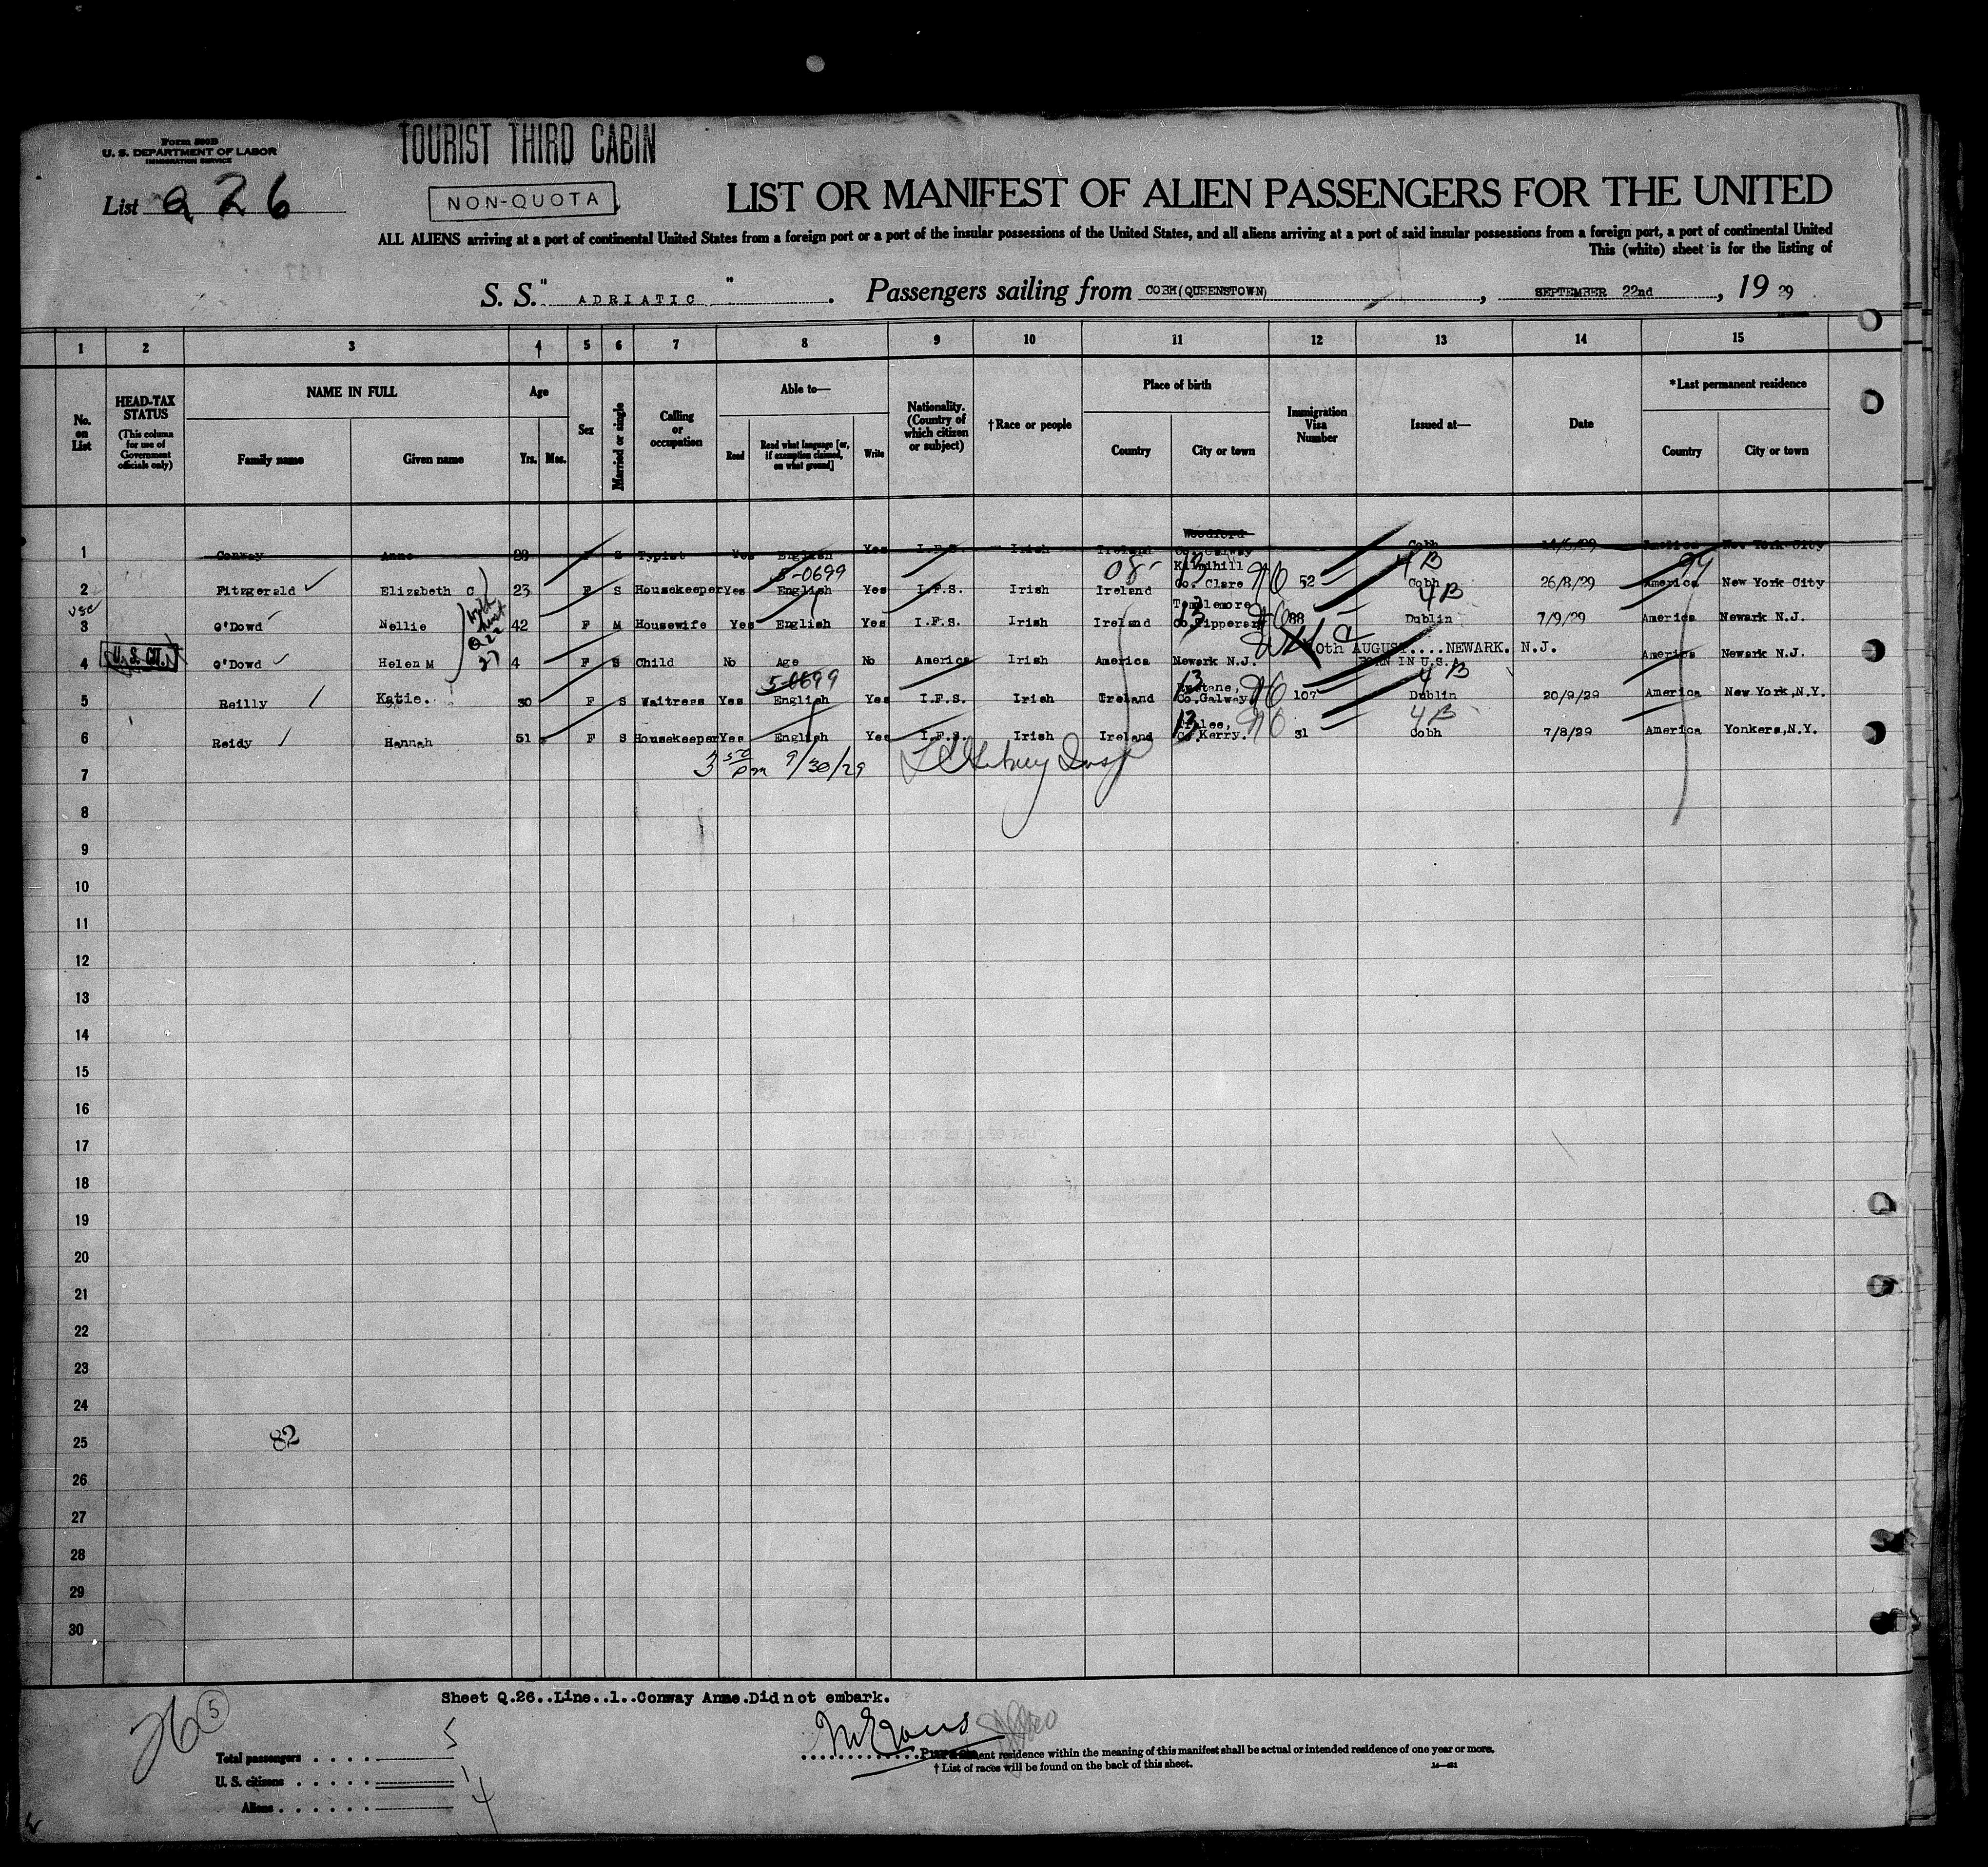 Form 500B
U. S. DEPARTMENT OF LABOR
IMMIGRATION SERVICE
TOURIST THIRD CABIN
List Q 26
NON-QUOTA
LIST OR MANIFEST OF ALIEN PASSENGERS FOR THE UNITED
ALL ALIENS arriving at a port of continental United States from a foreign port or a port of the insular possessions of the United States, and all aliens arriving at a port of said insular possessions from a foreign port, a port of continental United
This (white) sheet is for the listing of
S. S. " ADRIATIC ". Passengers sailing from COBH(QUEENSTOWN), SEPTEMBER 22nd, 19 29
1 2 3 4 5 6 7 8 9 10 11 12 13 14 15
No. on List
HEAD-TAX STATUS
(This column for use of Government officials only)
NAME IN FULL
Family name Given name
Age
Yrs. Mos.
Sex
Married or single
Calling or occupation
Able to—
Read Read what language [or, if exemption claimed, on what ground] Write
Nationality. (Country of which citizen or subject)
†Race or people
Place of birth
Country City or town
Immigration Visa Number
Issued at—
Date
*Last permanent residence
Country City or town
Woodford
1 Conway Anne S Typist Yes English Yes I.F.S. Irish Ireland Co. Galway Cobh America New York City
5-0699 08- 13 4B 99
Kilmihill
2 Fitzgerald Elizabeth C 23 F S Housekeeper Yes English Yes I.F.S. Irish Ireland Co. Clare 52 Cobh 26/8/29 America New York City
Templemore 13 4B
3 O'Dowd Nellie 42 F M Housewife Yes English Yes I.F.S. Irish Ireland Co.Tipperary 88 Dublin 7/9/29 America Newark N.J.
AUGUST....NEWARK. N.J.
U.S. CIT.
4 O'Dowd Helen M 4 F S Child No Age No America Irish America Newark N.J. BORN IN U.S.A. America Newark N.J.
5-0699 13 4B
5 Reilly Katie. 30 F S Waitress Yes English Yes I.F.S. Irish Ireland Co.Galway 107 Dublin 20/9/29 America New York,N.Y.
13 Tralee, 4B
6 Reidy Hannah 51 F S Housekeeper Yes English Yes I.F.S. Irish Ireland Co.Kerry. 31 Cobh 7/8/29 America Yonkers,N.Y.
3 50 pm 9/30/29
7
8
9
10
11
12
13
14
15
16
17
18
19
20
21
22
23
24
25 82
26
27
28
29
30
Sheet Q.26..Line..1..Conway Anne.Did not embark.
26 5
Total passengers . . . . 5
U. S. citizens . . . . . 1
Aliens . . . . . . 4
Purser
residence within the meaning of this manifest shall be actual or intended residence of one year or more.
† List of races will be found on the back of this sheet.